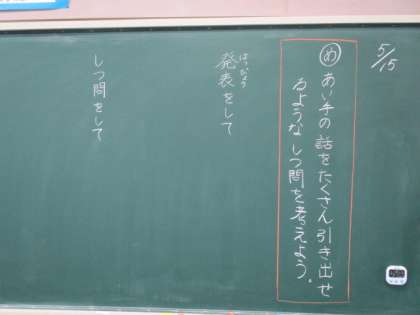 5/15
め あい手の話をたくさん引き出せ
るようなしつ問を考えよう。
はっぴょう
発表をして
しつ問をして